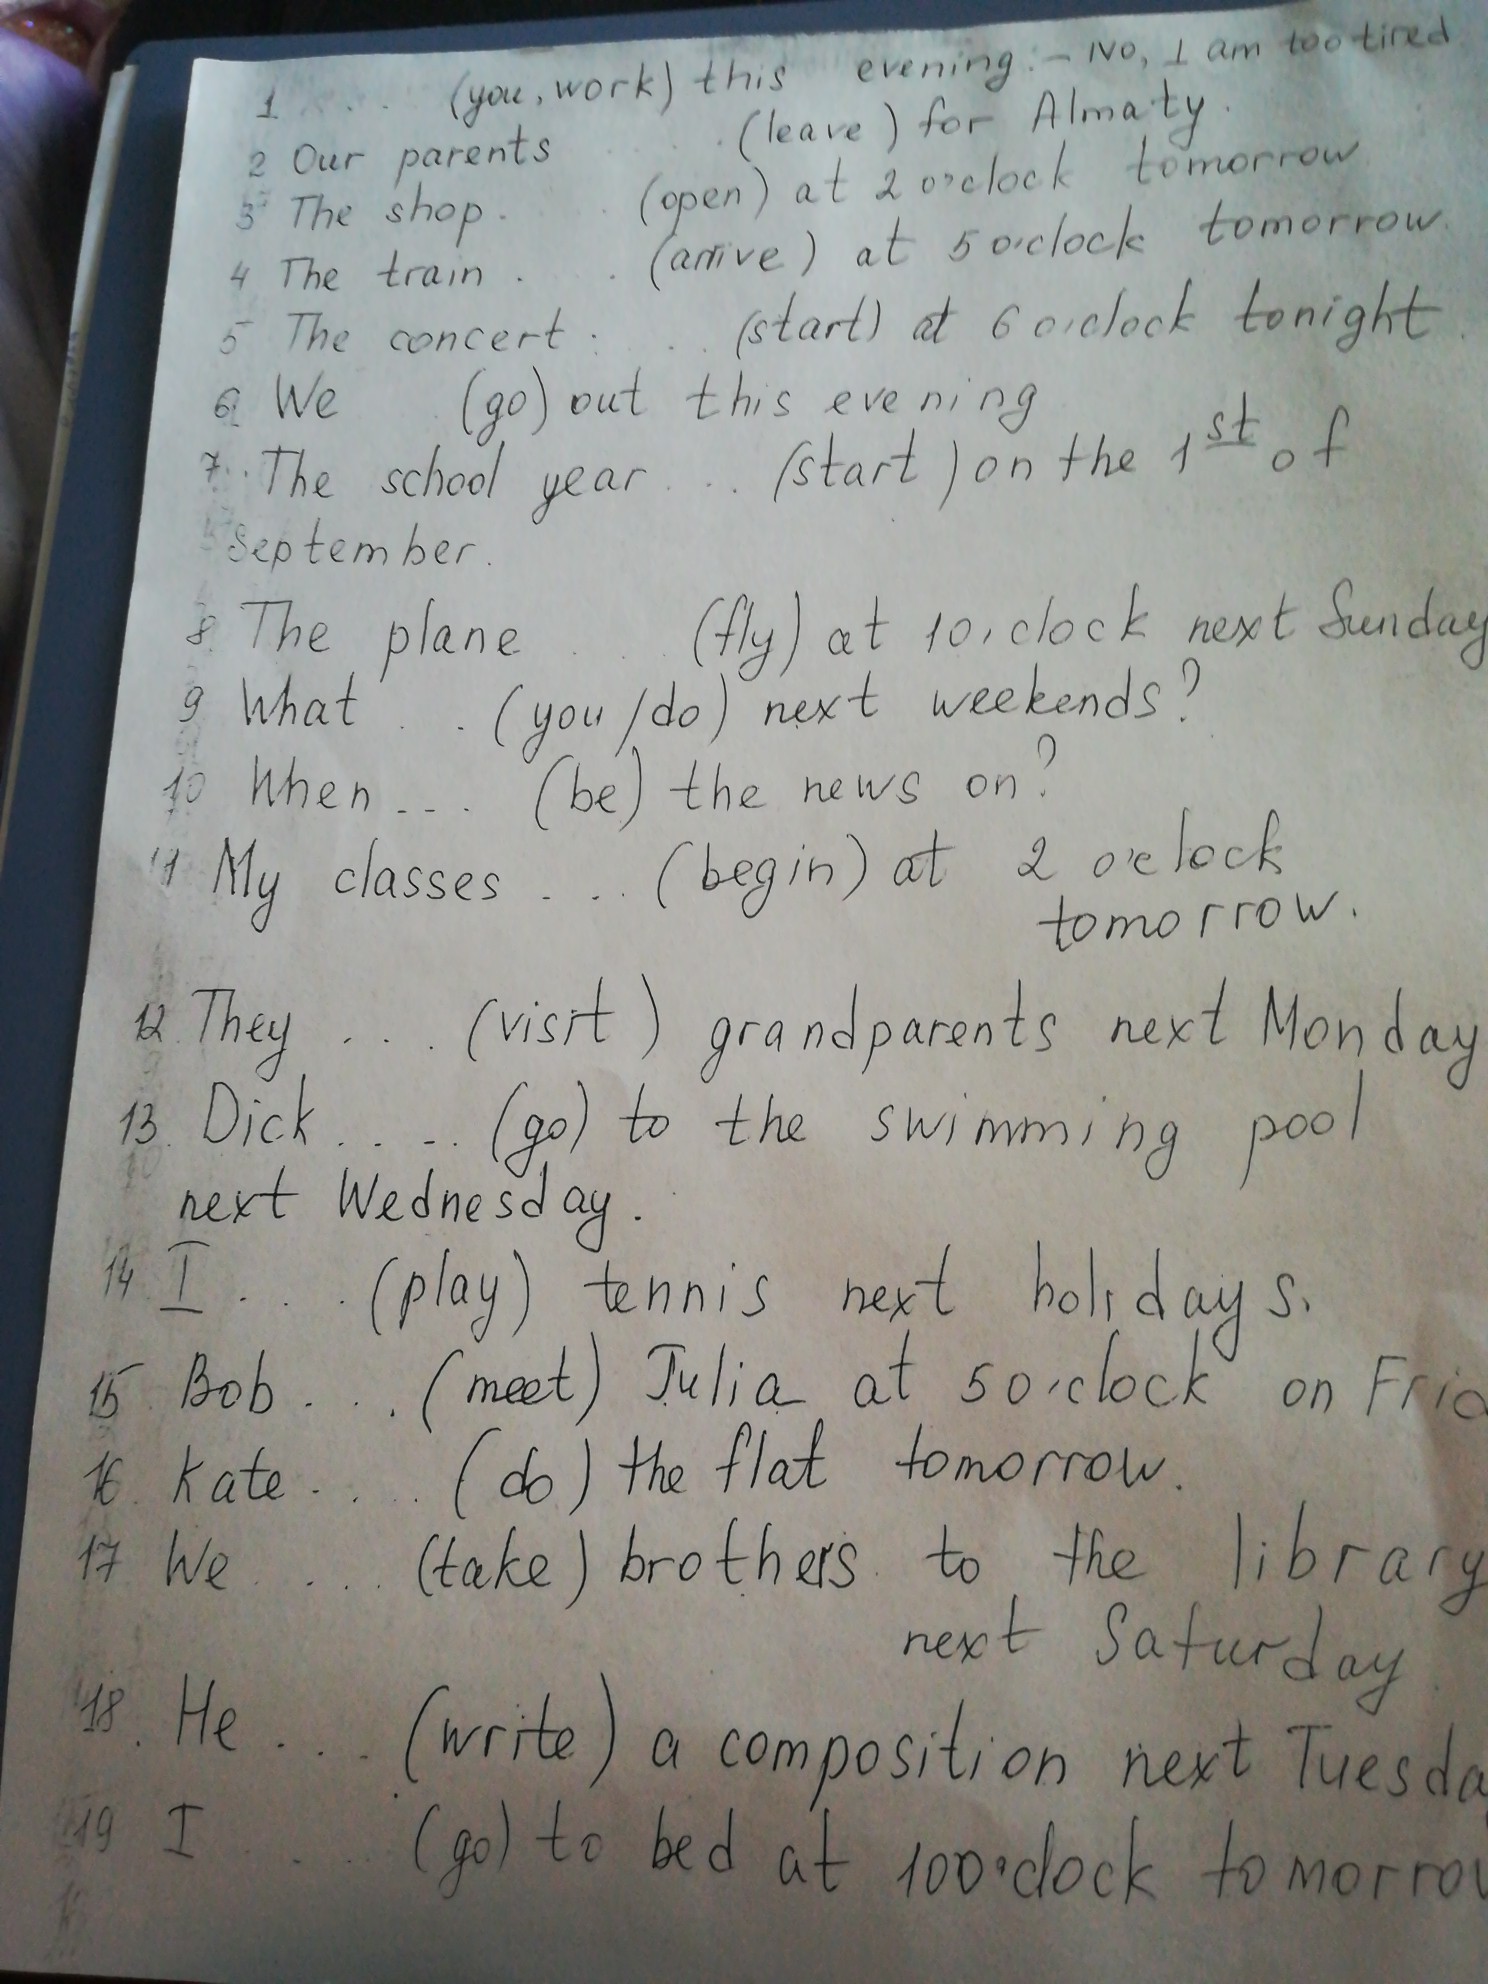 1 .... (you, work) this evening: - No, I am too tired
2 Our parents .... (leave) for Almaty.
3 The shop.... (open) at 2 o'clock tomorrow
4 The train .... (arrive) at 5 o'clock tomorrow.
5 The concert .... (start) at 6 o'clock tonight.
6 We (go) out this evening
7. The school year ... (start) on the 1st of
September.
8. The plane .... (fly) at 10,clock next Sunday
9 What ... (you/do) next weekends?
10 When ... (be) the news on?
11 My classes ... (begin) at 2 o'clock
tomorrow.
12. They .... (visit) grandparents next Monday
13. Dick ..... (go) to the swimming pool
next Wednesday.
14 I .... (play) tennis next holidays.
15 Bob .... (meet) Julia at 5 o'clock on Frid
16. Kate ..... (do) the flat tomorrow.
17 We ..... (take) brothers to the library
next Saturday.
18. He .... (write) a composition next Tuesda
19 I .... (go) to bed at 10 o'clock tomorrow